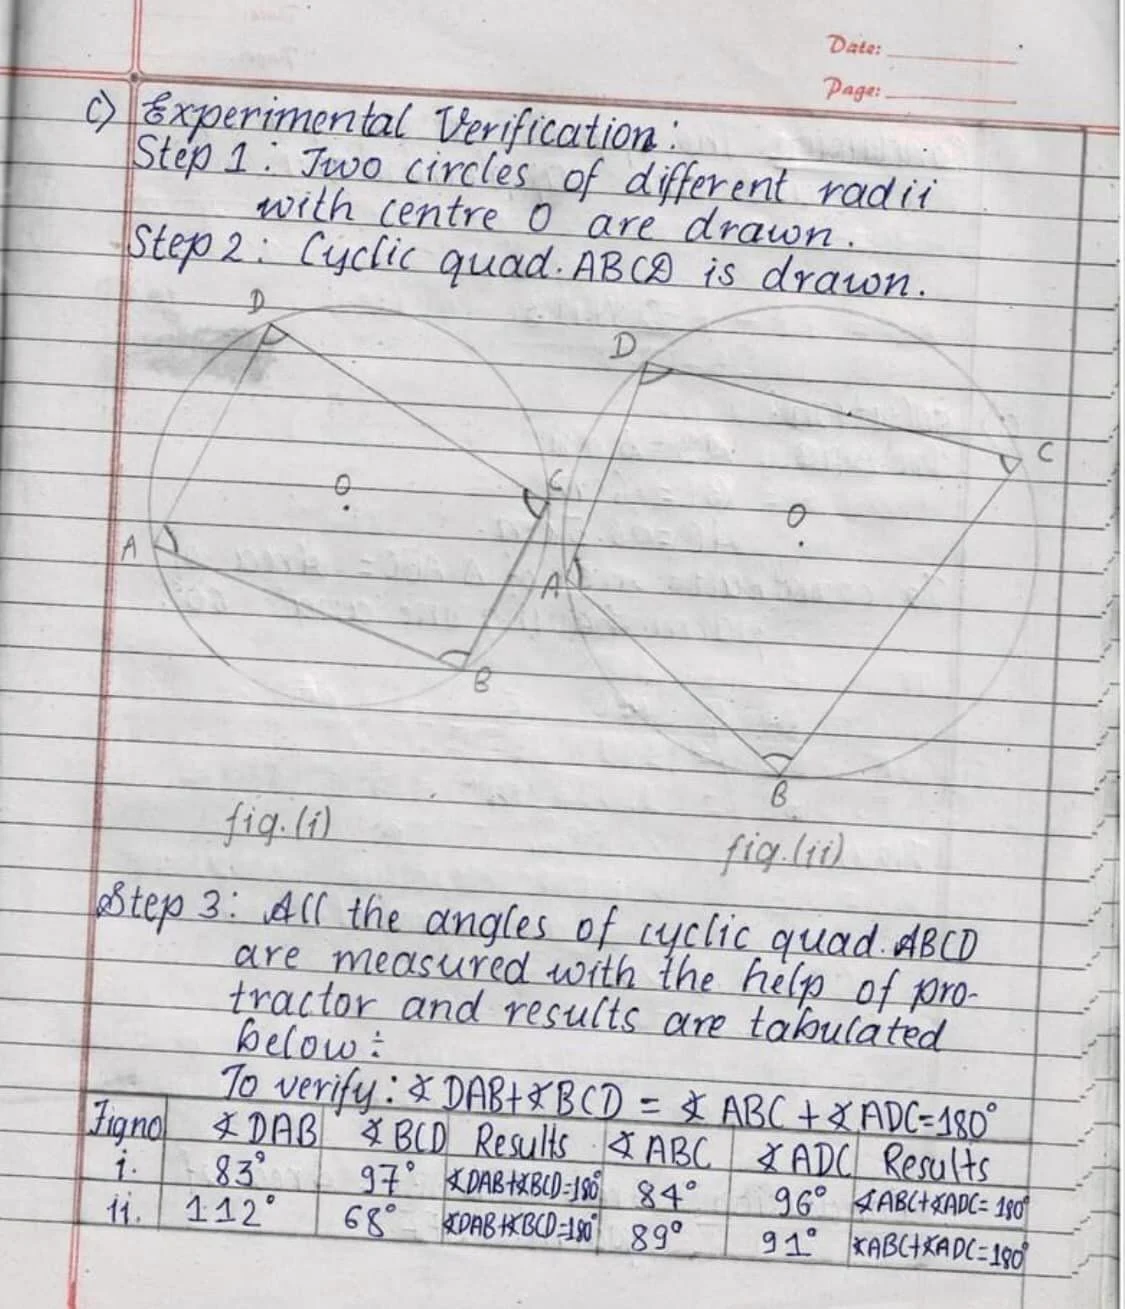 Date:
Page:
c) Experimental Verification:
Step 1: Two circles of different radii
with centre O are drawn.
Step 2: Cyclic quad. ABCD is drawn.
D
D
C
C
O
O
A
A
B
B
fig.(i)
fig.(ii)
Step 3: All the angles of cyclic quad. ABCD
are measured with the help of pro-
tractor and results are tabulated
below:
To verify: ∡DAB+∡BCD = ∡ABC+∡ADC=180°
Fig no ∡DAB ∡BCD Results ∡ABC ∡ADC Results
i. 83° 97° ∡DAB+∡BCD=180° 84° 96° ∡ABC+∡ADC=180°
ii. 112° 68° ∡DAB+∡BCD=180° 89° 91° ∡ABC+∡ADC=180°